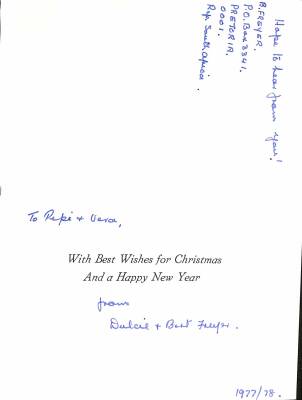 Hope to hear from you!
B. FREYER.
P.O. Box 3341.
PRETORIA.
0001.
Rep. South Africa.
To Pepi + Vera,
With Best Wishes for Christmas
And a Happy New Year
from
Dulcie + Bert Freyer.
1977/78.